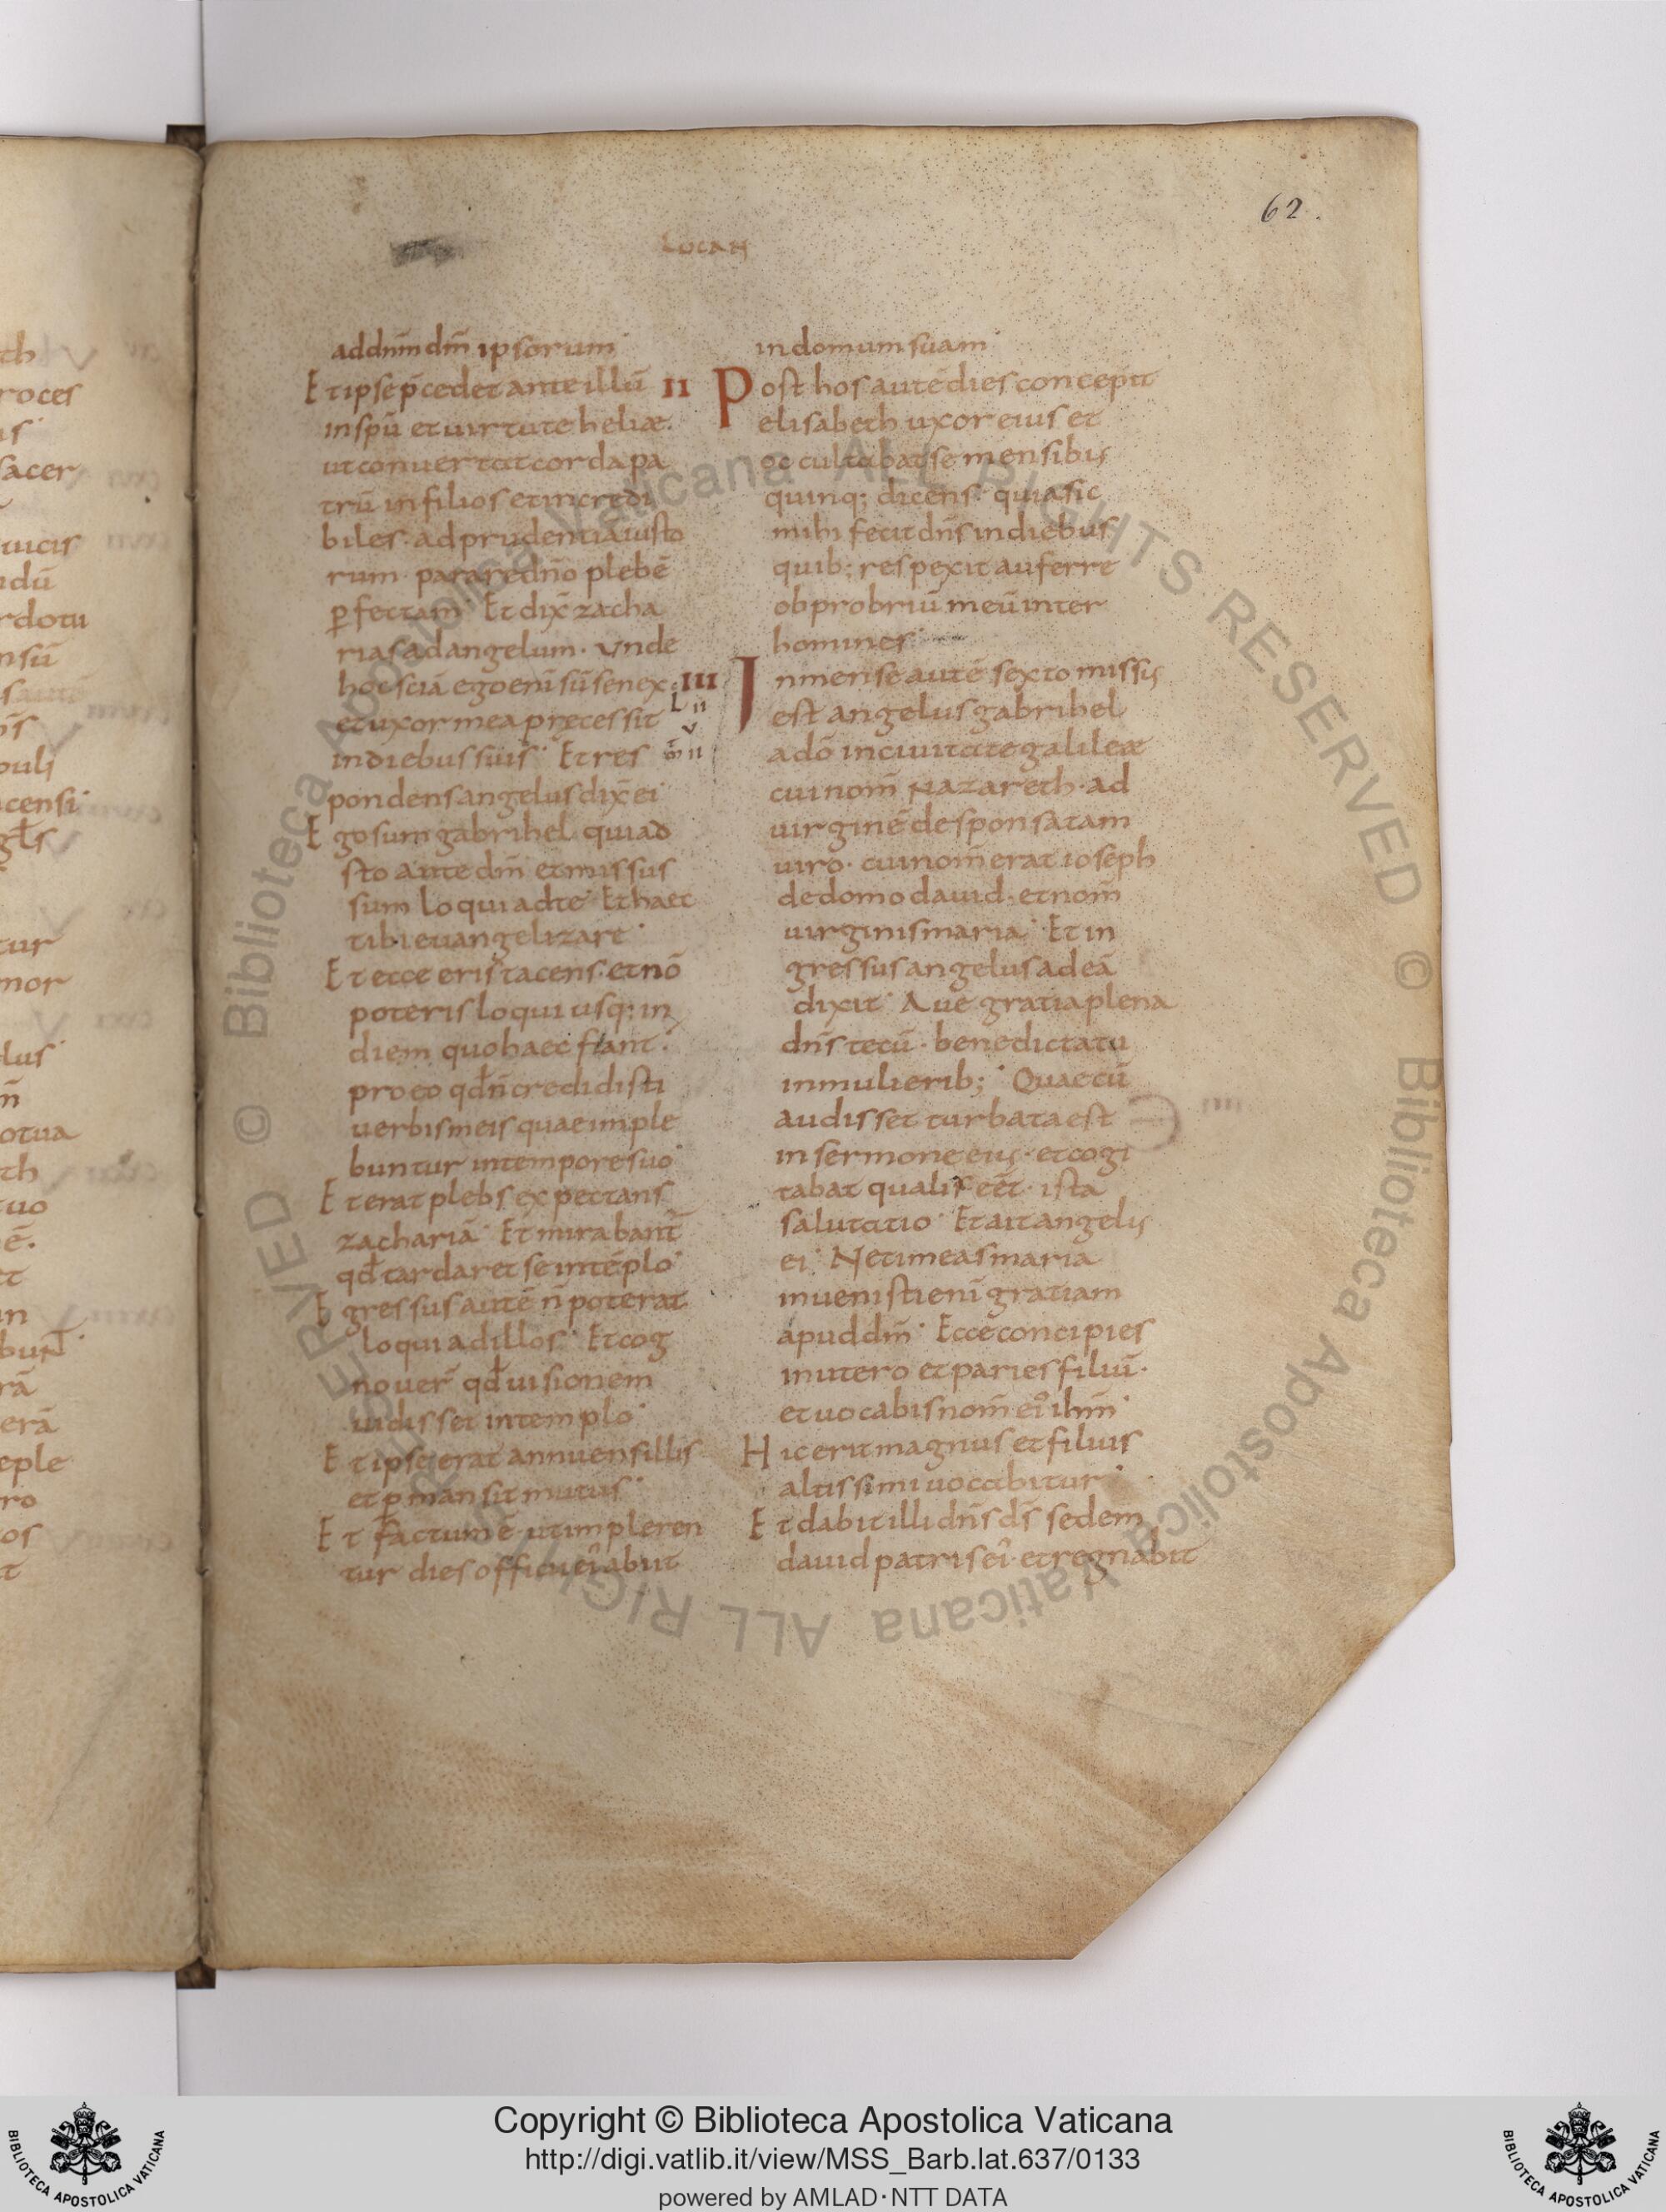 62.
LUCAN
addnm̄ dm̄ ipsorum
Et ipse p̄cedet ante illū
in spū et uirtute heliæ.
ut conuertat corda pa
trū in filios et incredi
biles. ad prudentiā iusto
rum. parare dn̄o plebē
ꝑfectam. Et dix̄ zacha
rias ad angelum. Vnde
hoc sciā ego eni sū senex.
et uxor mea p̱recessit
in diebus suis. Et res
pondens angelus dix̄ ei
Ego sum gabrihel qui ad
sto ante dm̄ et missus
sum loqui ad te. Et haec
tibi euangelizare.
Et ecce eris tacens. et nō
poteris loqui usq; in
diem quo haec fiant.
pro eo qd̄ n̄ credidisti
uerbis meis quae imple
buntur in tempore suo
Et erat plebs expectans
zachariā. Et mirabant̄
qd̄ tardaret se in tēplo.
Egressus autē n̄ poterat
loqui ad illos. Et cog
nouer̄ qd̄ uisionem
uidisset in templo.
Et ipse erat annuens illis
et ꝑmansit mutus.
Et factum ē ut impleren
tur dies officii ei' abiit
in domum suam.
II Post hos autē dies concepit
elisabeth uxor eius et
occultabat se mensibꝰ
quinq; dicens. quia sic
mihi fecit dn̄s in diebus
quib; respexit auferre
obprobriū meū inter
homines.
III In mense autē sexto missꝰ
L II
V
m̄ II
est angelus gabrihel
a dō in ciuitate galileæ
cui nom̄ Nazareth. ad
uirginē desponsatam
uiro. cui nom̄ erat ioseph
de domo dauid. et nom̄
uirginis maria. Et in
gressus angelus ad eā
dixit. Aue gratia plena
dn̄s tecū. benedicta tu
in mulierib;. Quae cū
audisset turbata est
in sermone eiꝰ. et cogi
tabat qualis eēt. ista
salutatio. Et ait angelꝰ
ei. Ne timeas maria
inuenisti eni gratiam
apud dm̄. Ecce concipies
in utero et paries filiū.
et uocabis nom̄ ei' ihm̄.
Hic erit magnus et filius
altissimi uocabitur.
Et dabit illi dn̄s ds̄ sedem
dauid patris ei'. et regnabit
Copyright © Biblioteca Apostolica Vaticana
http://digi.vatlib.it/view/MSS_Barb.lat.637/0133
powered by AMLAD·NTT DATA